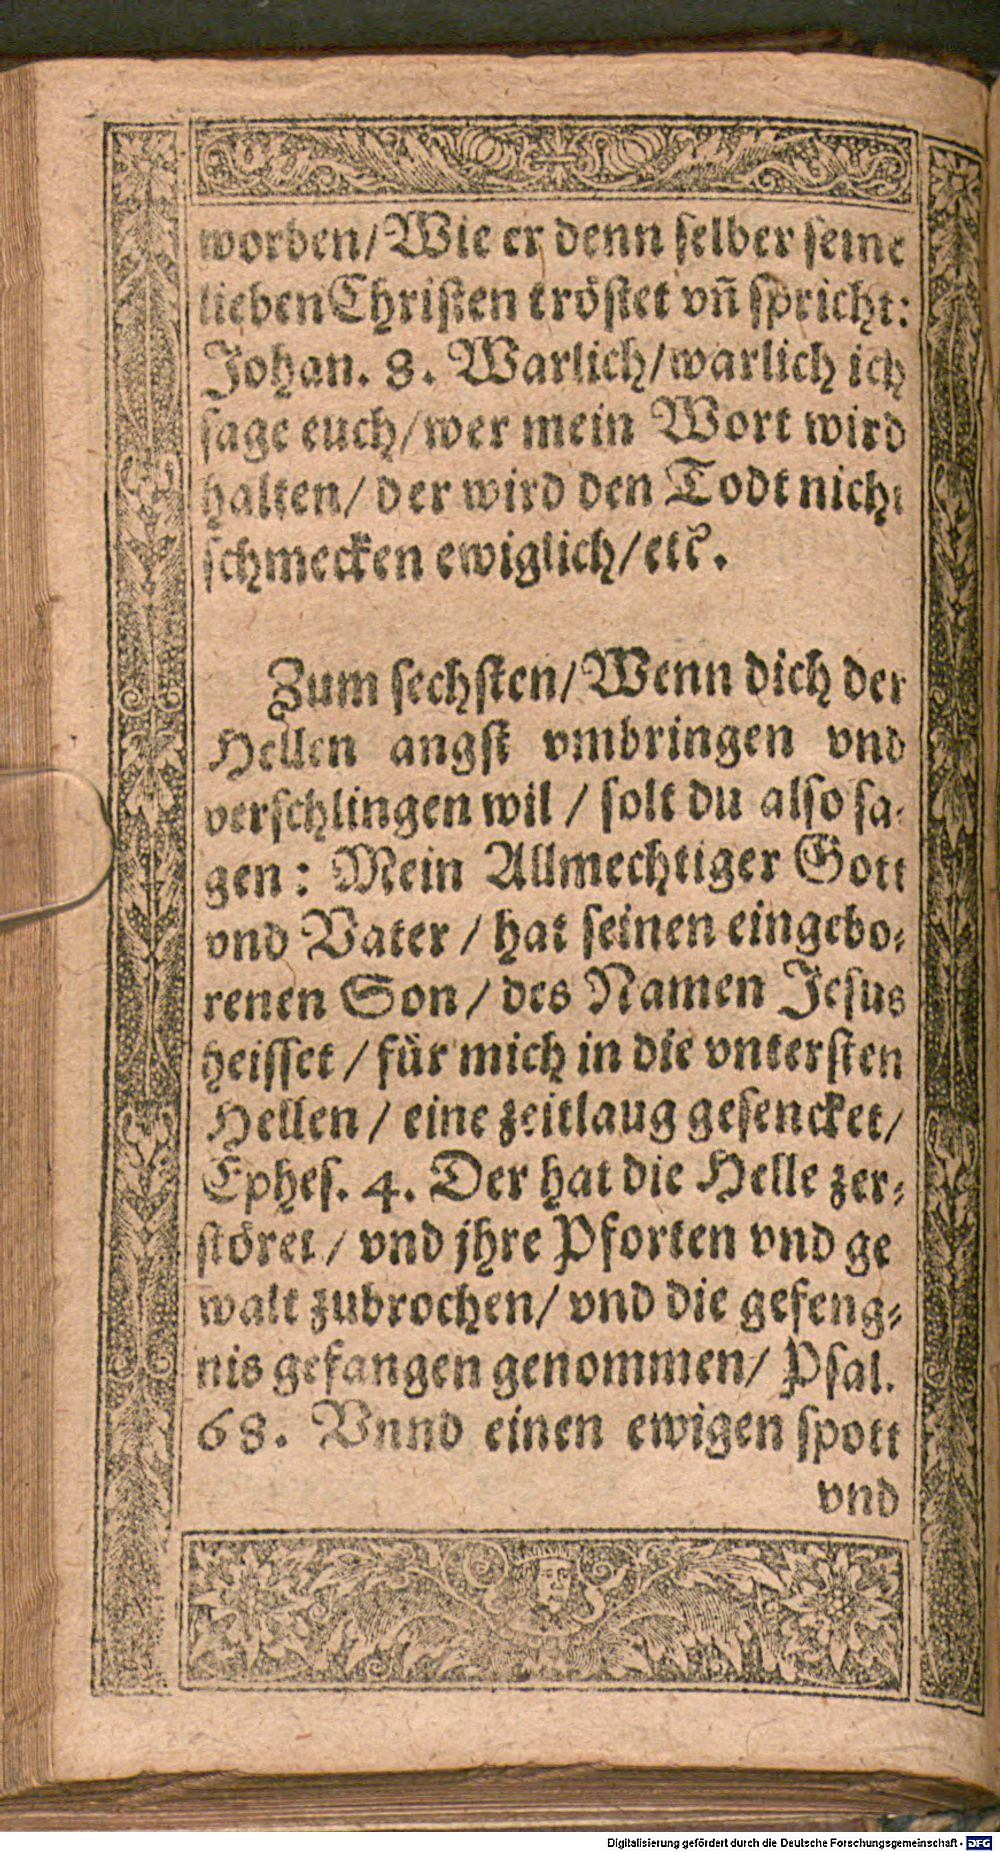 worben/ Wie er denn selber seine
lieben Christen tröstet vñ spricht:
Johan. 8. Warlich/ warlich ich
sage euch/ wer mein Wort wird
halten/ der wird den Todt nicht
schmecken ewiglich/ etc.
Zum sechsten/ Wenn dich der
Hellen angst vmbringen vnd
verschlingen wil / solt du also sa-
gen: Mein Allmechtiger Gott
vnd Vater / hat seinen eingebo-
renen Son / des Namen Jesus
heisset / für mich in die vntersten
Hellen / eine zeitlaug gesencket/
Ephes. 4. Der hat die Helle zer-
störet / vnd jhre Pforten vnd ge
walt zubrochen/ vnd die gefeng-
nis gefangen genommen/ Psal.
68. Vnnd einen ewigen spott
vnd
Digitalisierung gefördert durch die Deutsche Forschungsgemeinschaft - DFG